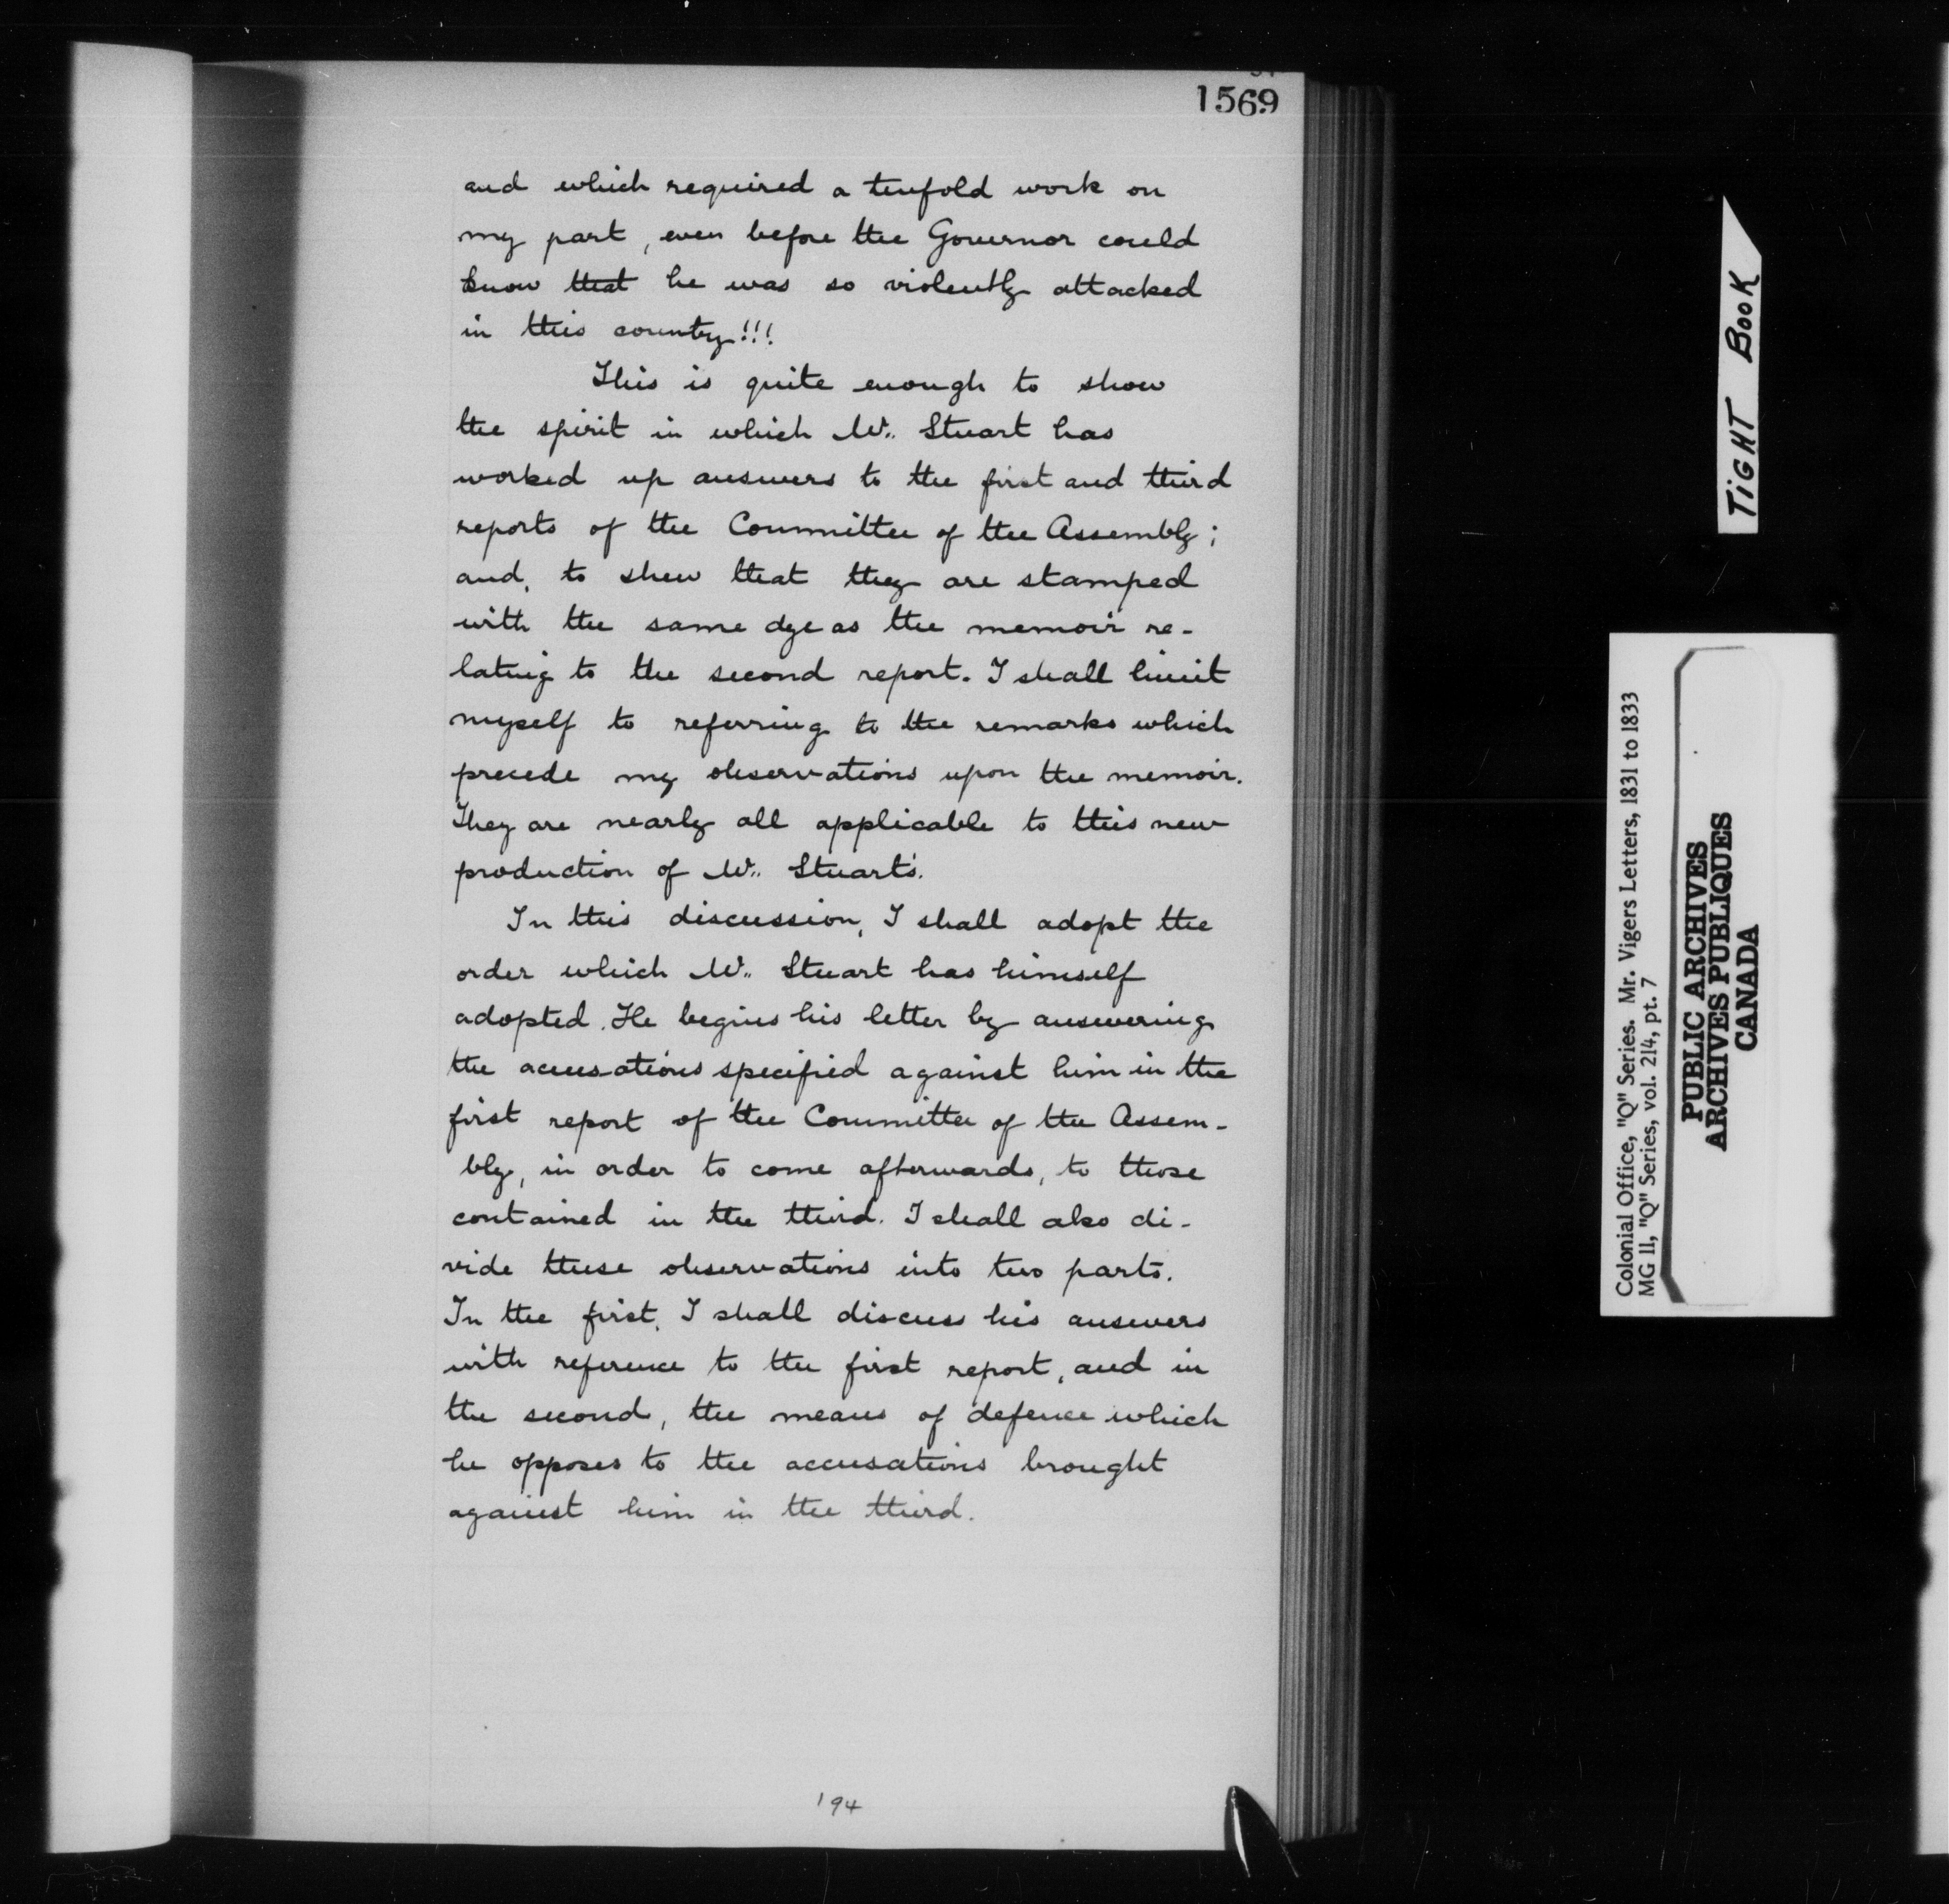 1569
and which required a tenfold work on
my part, even before the Governor could
know that he was so violently attacked
in this country!!!
This is quite enough to show
the spirit in which Mr. Stuart has
worked up answers to the first and third
reports of the Committee of the Assembly;
and, to shew that they are stamped
with the same dye as the memoir re-
lating to the second report. I shall limit
myself to referring to the remarks which
precede my observations upon the memoir.
They are nearly all applicable to this new
production of Mr. Stuart's.
In this discussion, I shall adopt the
order which Mr. Stuart has himself
adopted. He begins his letter by answering
the accusations specified against him in the
first report of the Committee of the Assem-
bly, in order to come afterwards, to those
contained in the third. I shall also di-
vide these observations into two parts.
In the first, I shall discuss his answers
with reference to the first report, and in
the second, the means of defence which
he opposes to the accusations brought
against him in the third.
194
TIGHT BOOK
Colonial Office, "Q" Series. Mr. Vigers Letters, 1831 to 1833
MG 11, "Q" Series, vol. 214, pt. 7
PUBLIC ARCHIVES
ARCHIVES PUBLIQUES
CANADA